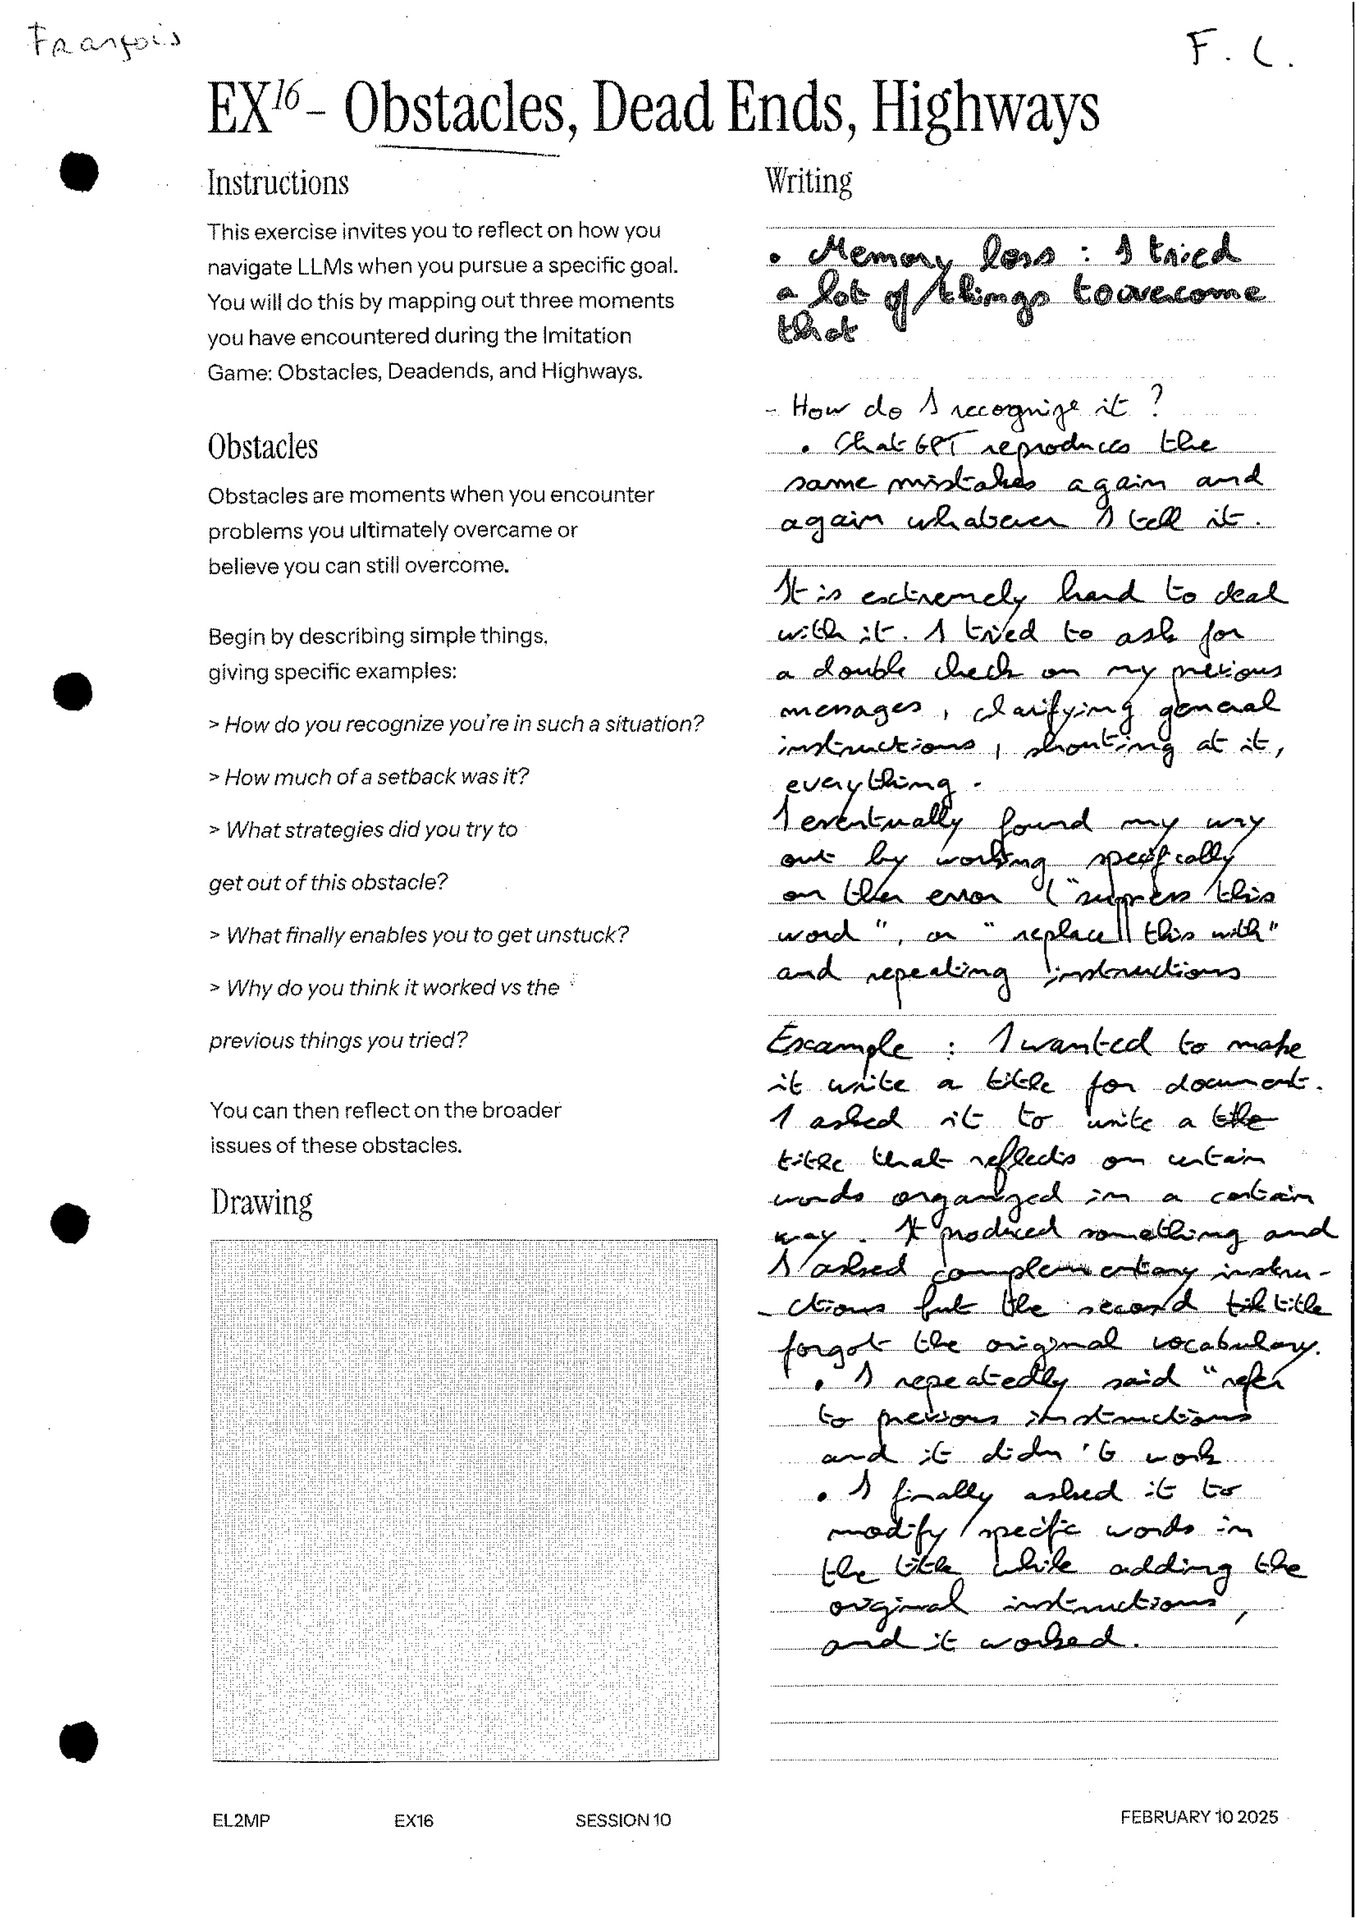 François
F. C.
EX16 - Obstacles, Dead Ends, Highways
Instructions
This exercise invites you to reflect on how you
navigate LLMs when you pursue a specific goal.
You will do this by mapping out three moments
you have encountered during the Imitation
Game: Obstacles, Deadends, and Highways.
Obstacles
Obstacles are moments when you encounter
problems you ultimately overcame or
believe you can still overcome.
Begin by describing simple things,
giving specific examples:
> How do you recognize you're in such a situation?
> How much of a setback was it?
> What strategies did you try to
get out of this obstacle?
> What finally enables you to get unstuck?
> Why do you think it worked vs the
previous things you tried?
You can then reflect on the broader
issues of these obstacles.
Drawing
Writing
• Memory loss : I tried
a lot of things to overcome
that
- How do I recognize it ?
• ChatGPT reproduces the
same mistakes again and
again whatever I tell it.
It is extremely hard to deal
with it. I tried to ask for
a double check on my previous
messages, clarifying general
instructions, shouting at it,
everything.
I eventually found my way
out by working specifically
on the error ("suppress this
word", or "replace this with"
and repeating instructions
Example : I wanted to make
it write a title for document.
I asked it to write a the
title that reflects on certain
words organized in a certain
way. It produced something and
I asked complementary instru-
-ctions but the second tik title
forgot the original vocabulary.
• I repeatedly said "refer
to previous instructions
and it didn't work
• I finally asked it to
modify specific words in
the title while adding the
original instructions,
and it worked.
EL2MP EX16 SESSION 10 FEBRUARY 10 2025